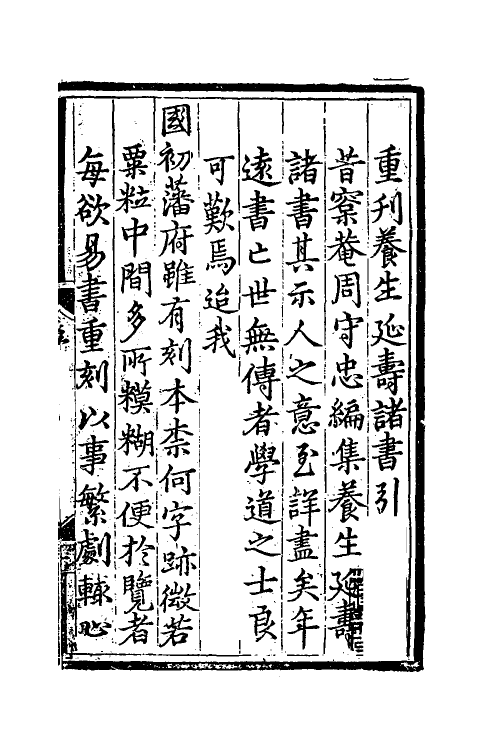 重刊養生延壽諸書引
昔㝥菴周守忠編集養生延壽
諸書其示人之意至詳盡矣年
遠書亡世無傳者學道之士良
可歎焉迨我
國初藩府雖有刻本柰何字跡微若
粟粒中間多所糢糊不便於覽者
每欲易書重刻以事繁劇輙